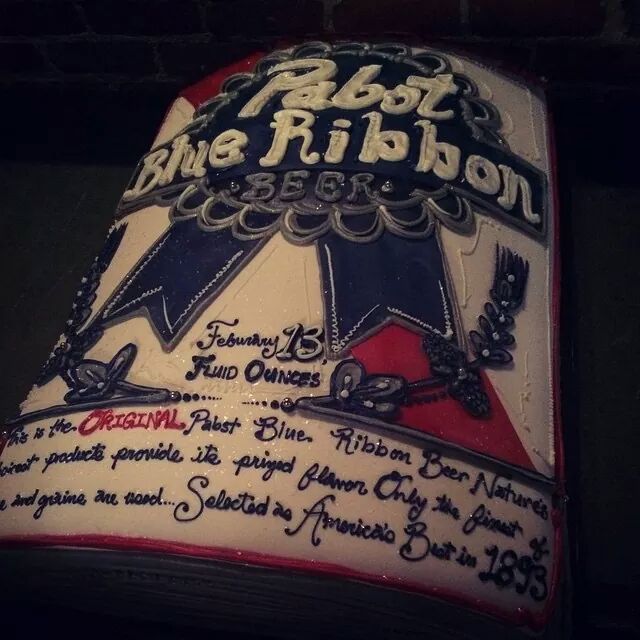 Pabst
Blue Ribbon
BEER
Feburary 13
FLUID OUNCES
This is the ORIGINAL Pabst Blue Ribbon Beer Natures
products provide its prized flavor Only the finest of
and grains are used... Selected as America's Best in 1893